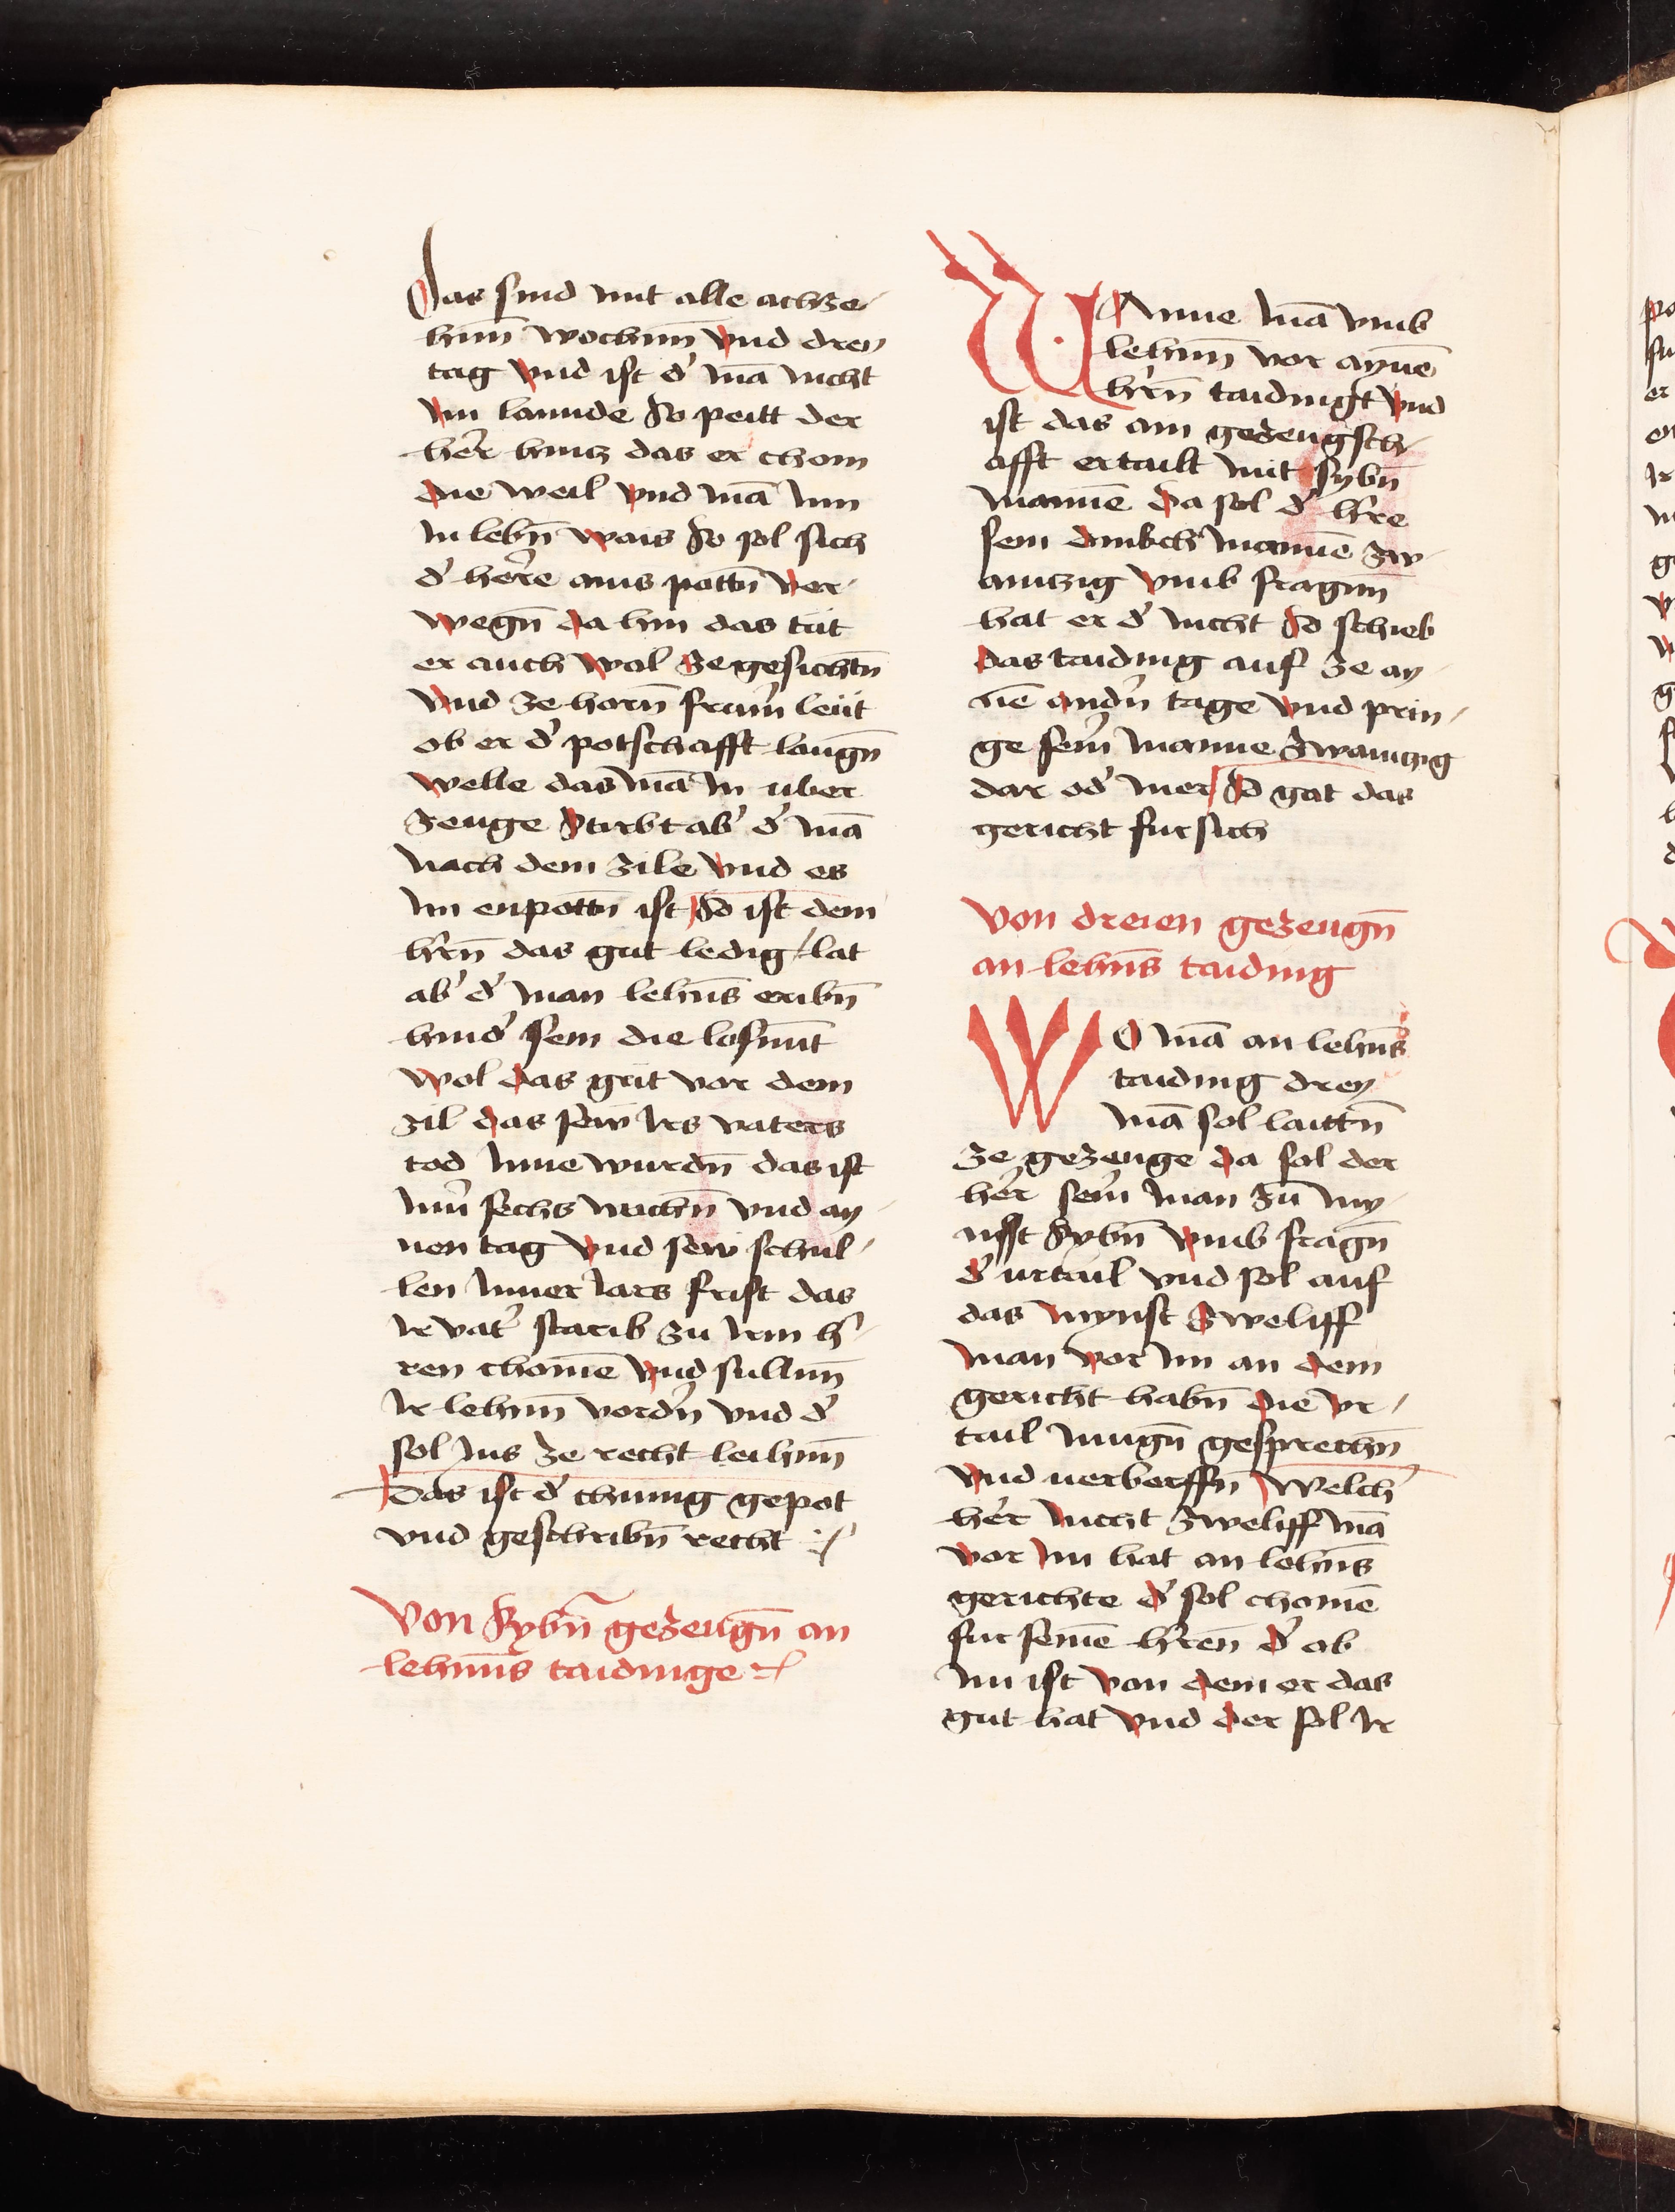 Das sind mit alle achze
henn̄ wochenn̄ vnd dreӱ
tag vnd ist d' mā nicht
Im lannde So peitt der
her̄r hintz das er chom
die weil vnd mā Inn
In lebn̄ wais So sol sich
d' her̄re ains pottn̄ ver
wegn̄ da hin das tut
er auch wol ze gesichtn̄
vnd ze horn̄ frum̄ leüt
ob er d' potschafft laugn̄
welle das mā In uber
zeuge Stirbt ab' d' mā
nach dem zile vnd es
Im enpottn̄ ist So ist dem
hr̄en̄ das gut ledig / lat
ab' d' man lehn̄s eribn̄
hind' sein die losnn̄t
wol das gut vor dem
zil das sew Irs vaters
tod Inne wurdn̄ das ist
Inn̄ sechs wochn̄ vnd ay
nen tag vnd sew schul
len Inner Iars frist das
Ir vat' starib zu Irm h'
ren chomē vnd sullnn̄
Ir lehenn̄ vordn̄ vnd d'
sol Ins ze recht leihenn̄
Das ist d' chunig gepot
vnd geschribn̄ recht
Von Sybn̄ gezeugn̄ an
lehenn̄s taidinge
WAnne mā vmb
lehenn̄ vor aynē
hr̄n̄ taidingt vnd
ist das ain gezeugsch
afft ertailt mit sybn̄
mannē da sol d' hr̄re
sein dinkch mannē zw
aintzig vmb fragnn̄
hat er d' nicht So schieb
das taiding auf ze ay
nē andn̄ tage vnd prin
ge sein̄ manne zwaintzig
dar od' mer So gat das
gericht fur sich
Von dreien gezeugn̄
an lehn̄s taiding
WO mā an lehn̄s
taiding dreӱ
mā sol laittn̄
ze gezeuge da sol der
her̄r sein̄ man zu my
nst Sybn̄ vmb fragn̄
d' urtail vnd sol auf
das mynst Zweliff
man vor Im an dem
gericht habn̄ die vr
tail mugn̄ gesprechn̄
vnd uerberffn̄ Welch'
her̄r nicht zweliff mā
vor Im hat an lehn̄s
gerichte d' sol chomē
fur seinē hr̄en̄ d' ob
Im ist von dem er das
gut hat vnd der sol Ir